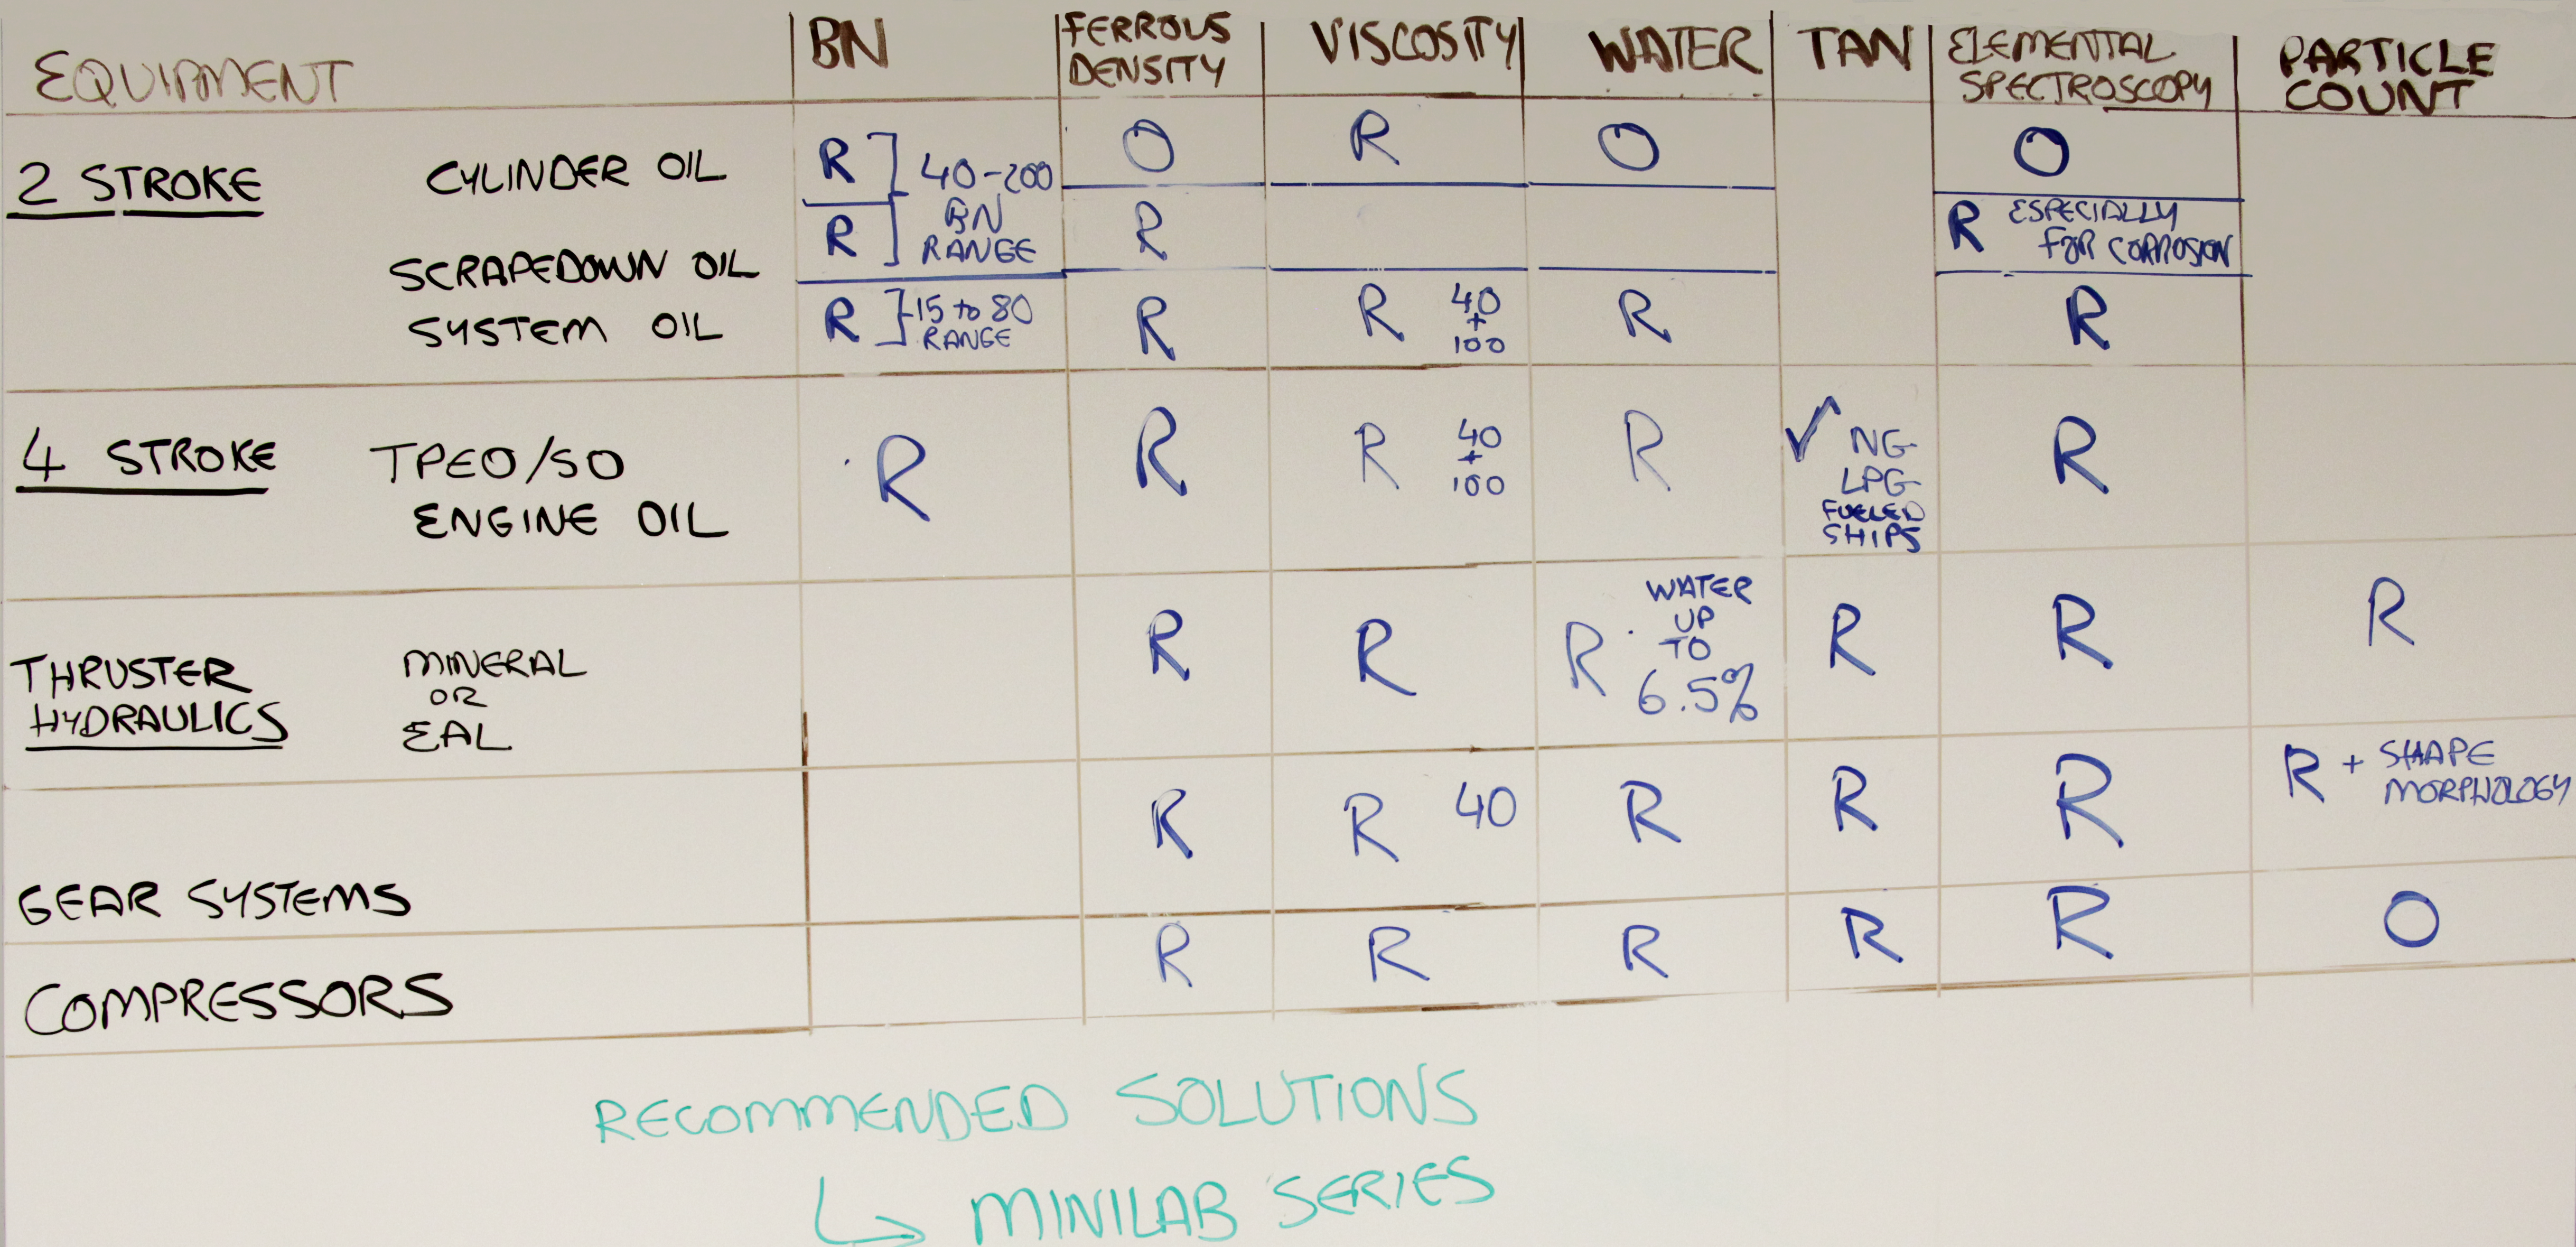 EQUIPMENT BN FERROUS DENSITY VISCOSITY WATER TAN ELEMENTAL SPECTROSCOPY PARTICLE COUNT
2 STROKE CYLINDER OIL R ] 40-200 O R O O
BN
SCRAPEDOWN OIL R ] RANGE R R ESPECIALLY
FOR CORROSION
SYSTEM OIL R ] 15 to 80 R R 40 R R
RANGE +
100
4 STROKE TPEO/SO R R R 40 R ✓ NG R
ENGINE OIL + LPG
100 FUELED
SHIPS
THRUSTER MINERAL R R R WATER R R R
HYDRAULICS OR UP
EAL TO
6.5%
GEAR SYSTEMS R R 40 R R R R + SHAPE
MORPHOLOGY
COMPRESSORS R R R R R O
RECOMMENDED SOLUTIONS
↳ MINILAB SERIES